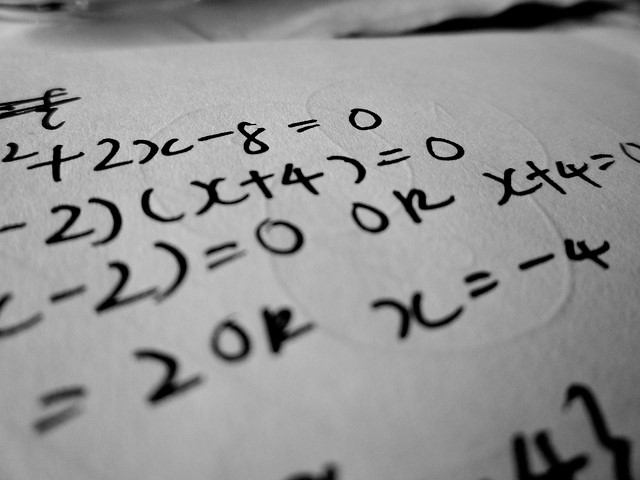 ²+2x-8=0
-2)(x+4)=0
x-2)=0 OR x+4=0
=2 OR x=-4
4}